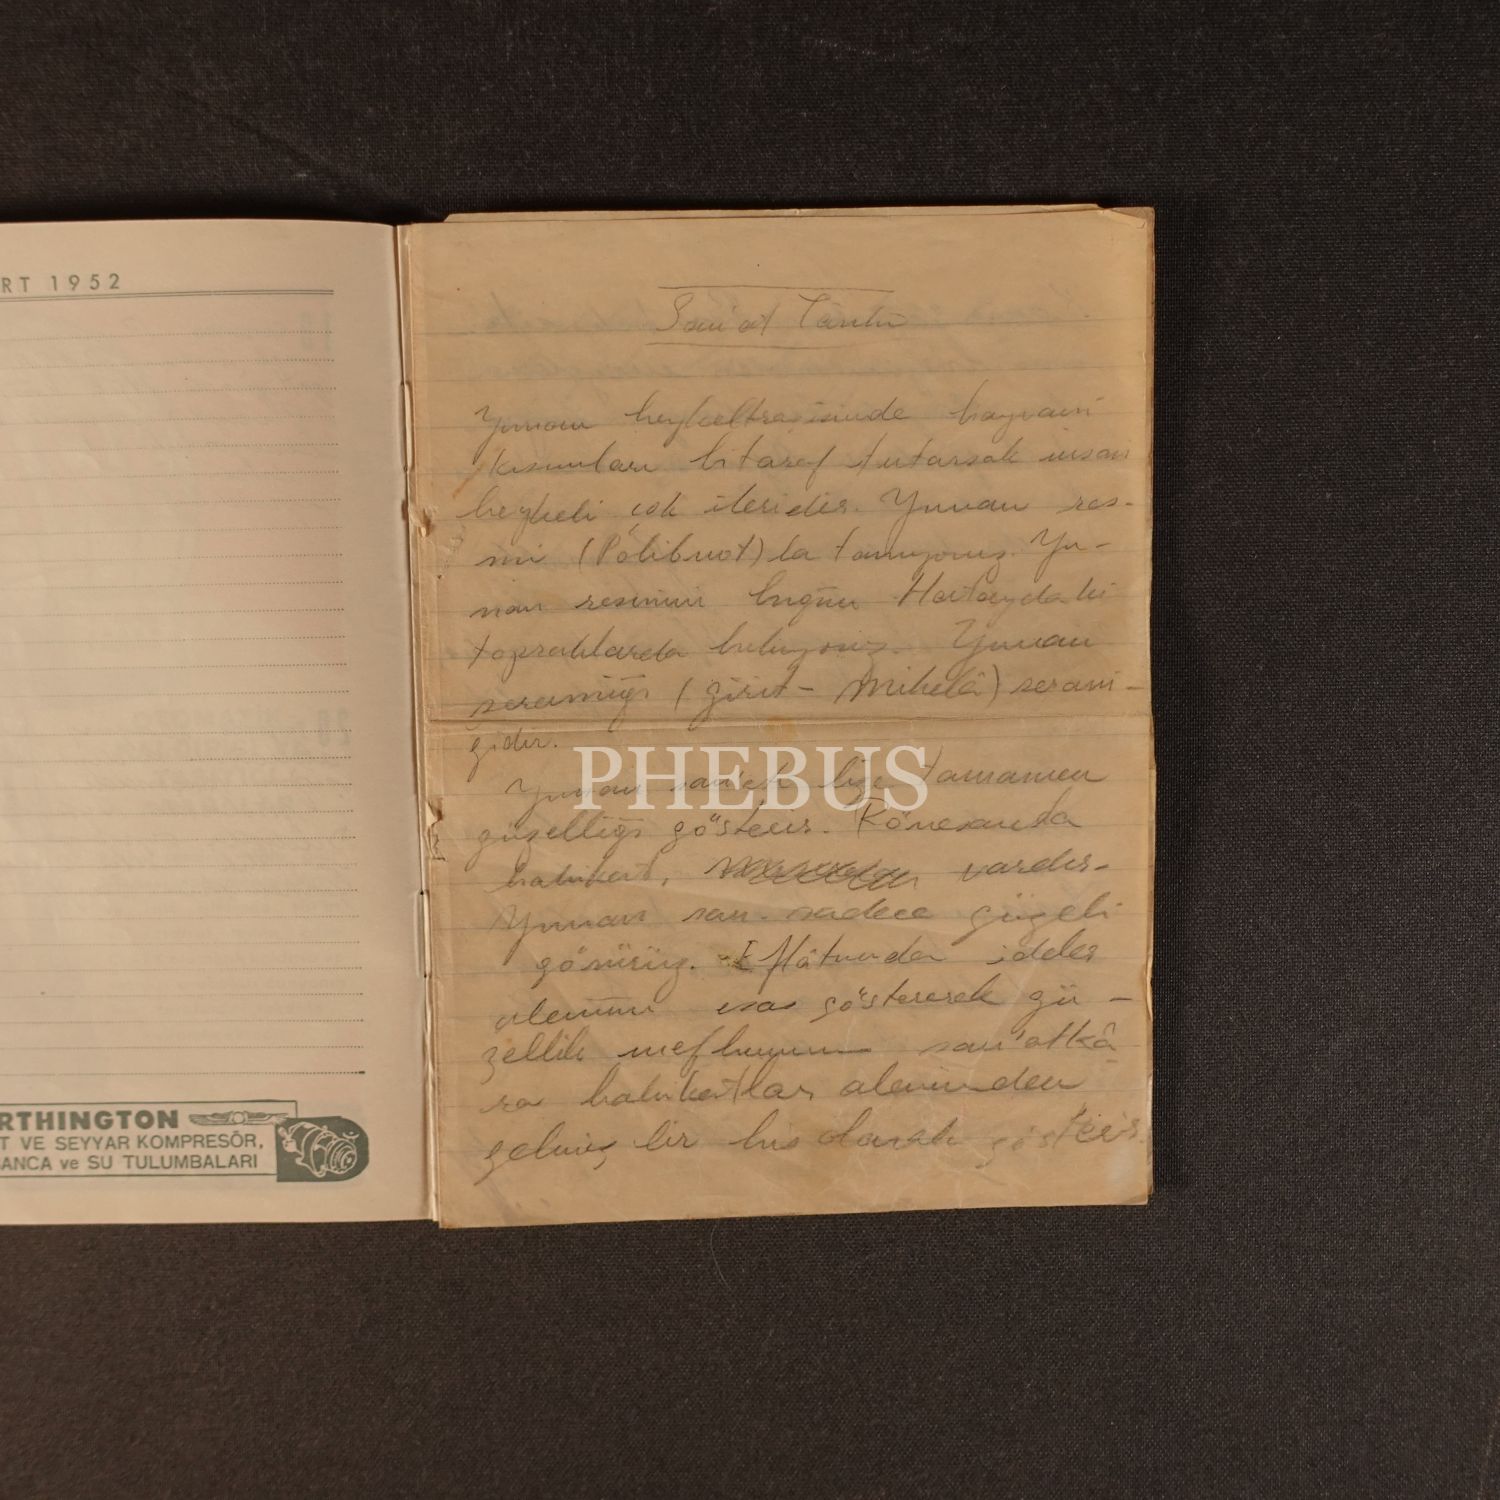 RT 1952
RTHINGTON
T VE SEYYAR KOMPRESÖR,
ANCA ve SU TULUMBALARI
San'at Tarihi
Yunan heykeltraşisinde hayvani
kısımları bitaraf tutarsak insan
heykeli çok ileridir. Yunan res-
mi (Polibnot) la tanıyoruz. Yu-
nan resmini bugün Hataydaki
topraklarda buluyoruz. Yunan
seramiği (girit - Mikelâ) serami-
ğidir.
PHEBUS
Yunan san'atı bize tamamen
güzelliği gösterir. Rönesansta
hakikat, vardır.
Yunan san. sadece güzeli
görürüz. Eflâtunda ideler
alemini esas göstererek gü-
zellik mefhumunu san'atkâ-
ra hakikatlar aleminden
gelmiş bir his olarak gösterir.